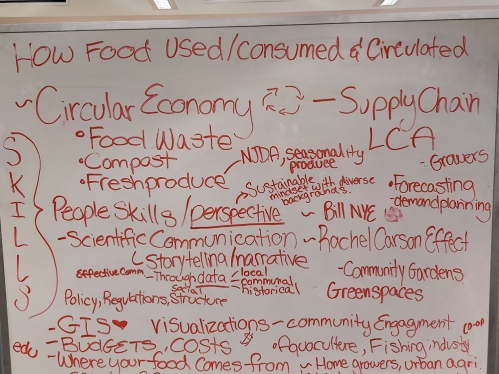 How Food Used/Consumed & Circulated
~ Circular Economy — Supply Chain
• Food Waste LCA
• Compast NJDA, seasonality produce - Growers
• Fresh produce Sustainable mindset with diverse backgrounds. • Forecasting
- demand planning
SKILLS
People Skills/perspective ~ Bill NYE
- Scientific Communication ~ Rachel Carson Effect
Storytelling/narrative
Effective Comm - Through data - local - communal - historical - Community Gardens
social
Policy, Regulations, Structure Greenspaces
- GIS ♥ visualizations - community Engagment co-op
edu - BUDGETS, COSTS $ • Aquaculture, Fishing industry
- Where your food comes from ~ Home growers, urban agri.